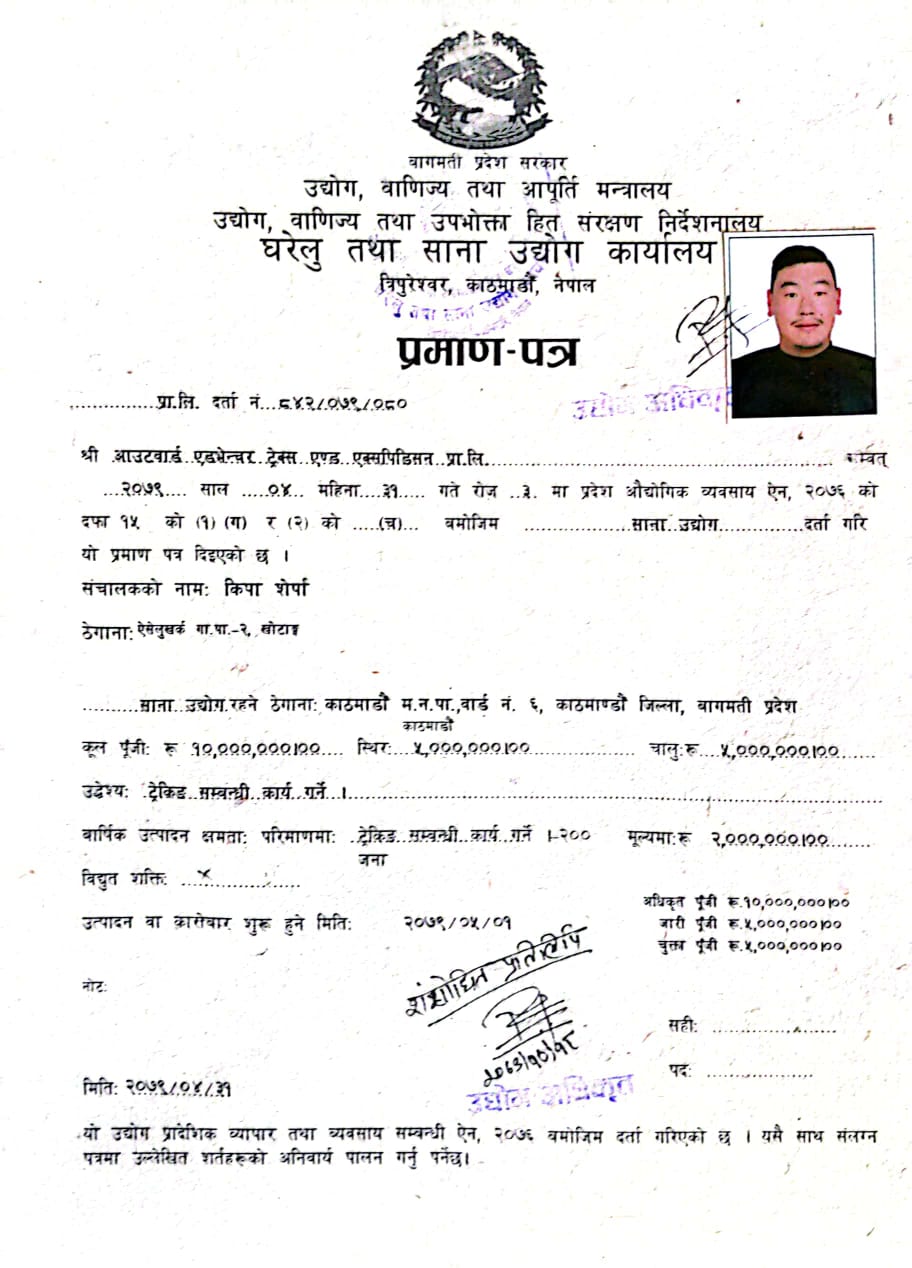 बागमती प्रदेश सरकार
उद्योग, वाणिज्य तथा आपूर्ति मन्त्रालय
उद्योग, वाणिज्य तथा उपभोक्ता हित संरक्षण निर्देशनालय
घरेलु तथा साना उद्योग कार्यालय
त्रिपुरेश्वर, काठमाडौं, नेपाल
प्रमाण-पत्र
उद्योग अधिकृत
..............प्रा.लि. दर्ता नं...८४२/०७९/०८०
श्री आउटवार्ड एडभेन्चर ट्रेक्स एण्ड एक्सपिडिसन प्रा.लि. म्वत्
...२०७९.... साल ....०४... महिना...३१.... गते रोज ..३. मा प्रदेश औद्योगिक व्यवसाय ऐन, २०७६ को
दफा १५ को (१) (ग) र (२) को ....(च)... बमोजिम ................साना उद्योग.............दर्ता गरि
यो प्रमाण पत्र दिइएको छ ।
संचालकको नामः किपा शेर्पा
ठेगानाः ऐसेलुखर्क गा.पा.-२, खोटाङ
..........साना उद्योग रहने ठेगानाः काठमाडौं म.न.पा.,वार्ड नं. ६, काठमाण्डौं जिल्ला, बागमती प्रदेश
काठमाडौं
कूल पूँजीः रू १०,०००,०००।००.... स्थिरः...५,०००,०००।००................ चालुःरू...५,०००,०००।००......
उद्देश्यः ट्रेकिङ सम्वन्धी कार्य गर्ने ।
बार्षिक उत्पादन क्षमताः परिमाणमाः ट्रेकिङ सम्वन्धी कार्य गर्ने ।-२०० मूल्यमाःरू २,०००,०००।००
जना
विद्युत शक्तिः ..x............
अधिकृत पूँजी रू.१०,०००,०००।००
उत्पादन वा कारोबार शुरू हुने मितिः २०७९/०५/०१
जारी पूँजी रू.५,०००,०००।००
चुक्ता पूँजी रू.५,०००,०००।००
शंसोधित प्रतिलिपि
नोटः
सहीः ......................
पदः ...................
२०८१/१०/१८
मितिः २०७९/०४/३१
उद्योग अधिकृत
यो उद्योग प्रादेशिक व्यापार तथा व्यवसाय सम्वन्धी ऐन, २०७६ बमोजिम दर्ता गरिएको छ । यसै साथ संलग्न
पत्रमा उल्लेखित शर्तहरूको अनिवार्य पालन गर्नु पर्नेछ।